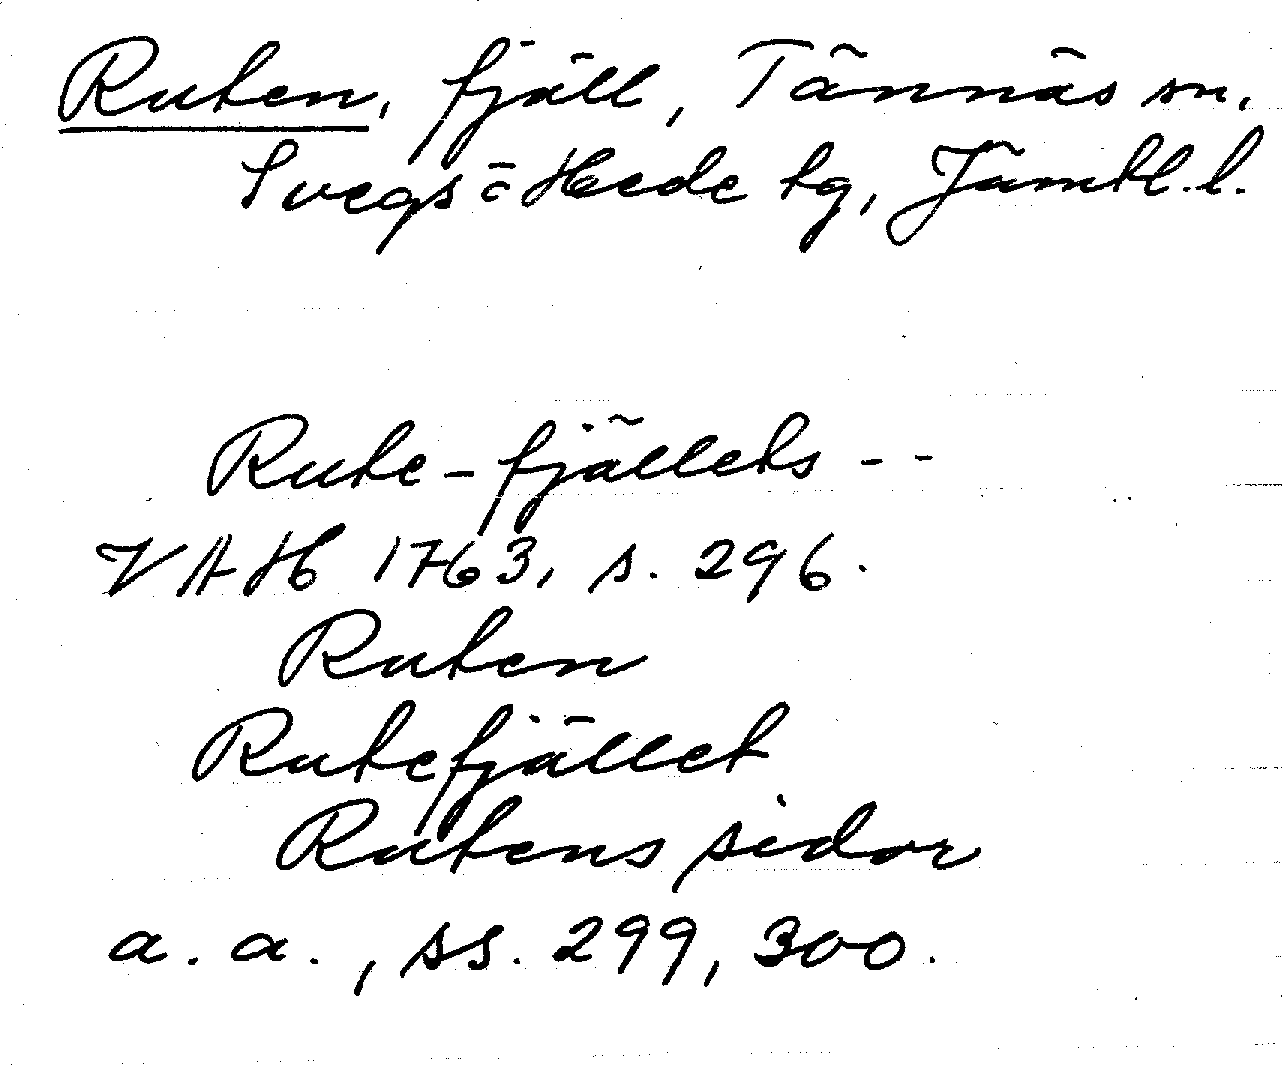 Ruten, fjäll, Tännäs sn,
Svegs o Hede tg, Jämtl. l.
Rute-fjällets --
VAH 1763, s. 296.
Ruten
Rutefjället
Rutens sidor
a. a., ss. 299, 300.